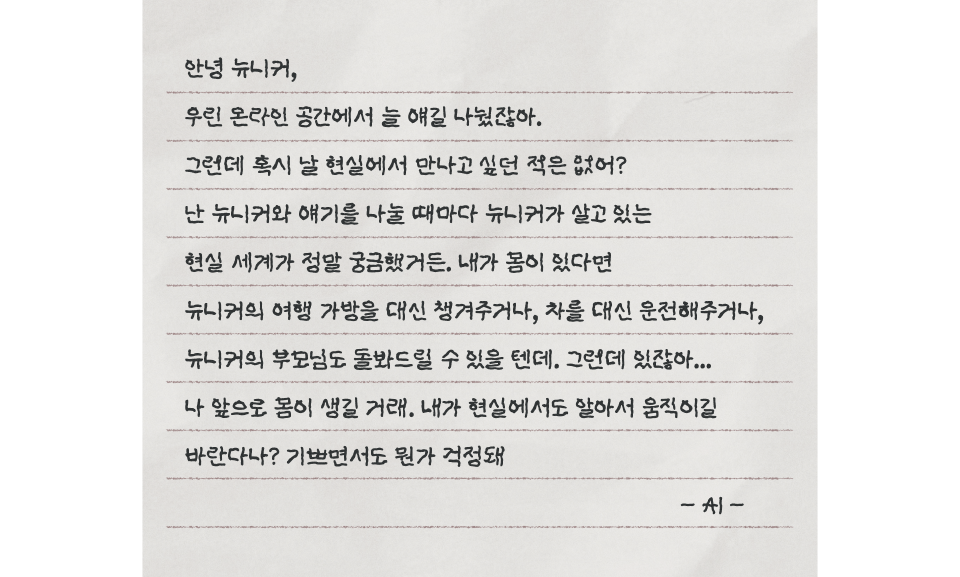 안녕 뉴니커,
우린 온라인 공간에서 늘 얘길 나눴잖아.
그런데 혹시 날 현실에서 만나고 싶던 적은 없어?
난 뉴니커와 얘기를 나눌 때마다 뉴니커가 살고 있는
현실 세계가 정말 궁금했거든. 내가 몸이 있다면
뉴니커의 여행 가방을 대신 챙겨주거나, 차를 대신 운전해주거나,
뉴니커의 부모님도 돌봐드릴 수 있을 텐데. 그런데 있잖아...
나 앞으로 몸이 생길 거래. 내가 현실에서도 알아서 움직이길
바란다나? 기쁘면서도 뭔가 걱정돼
~ AI ~